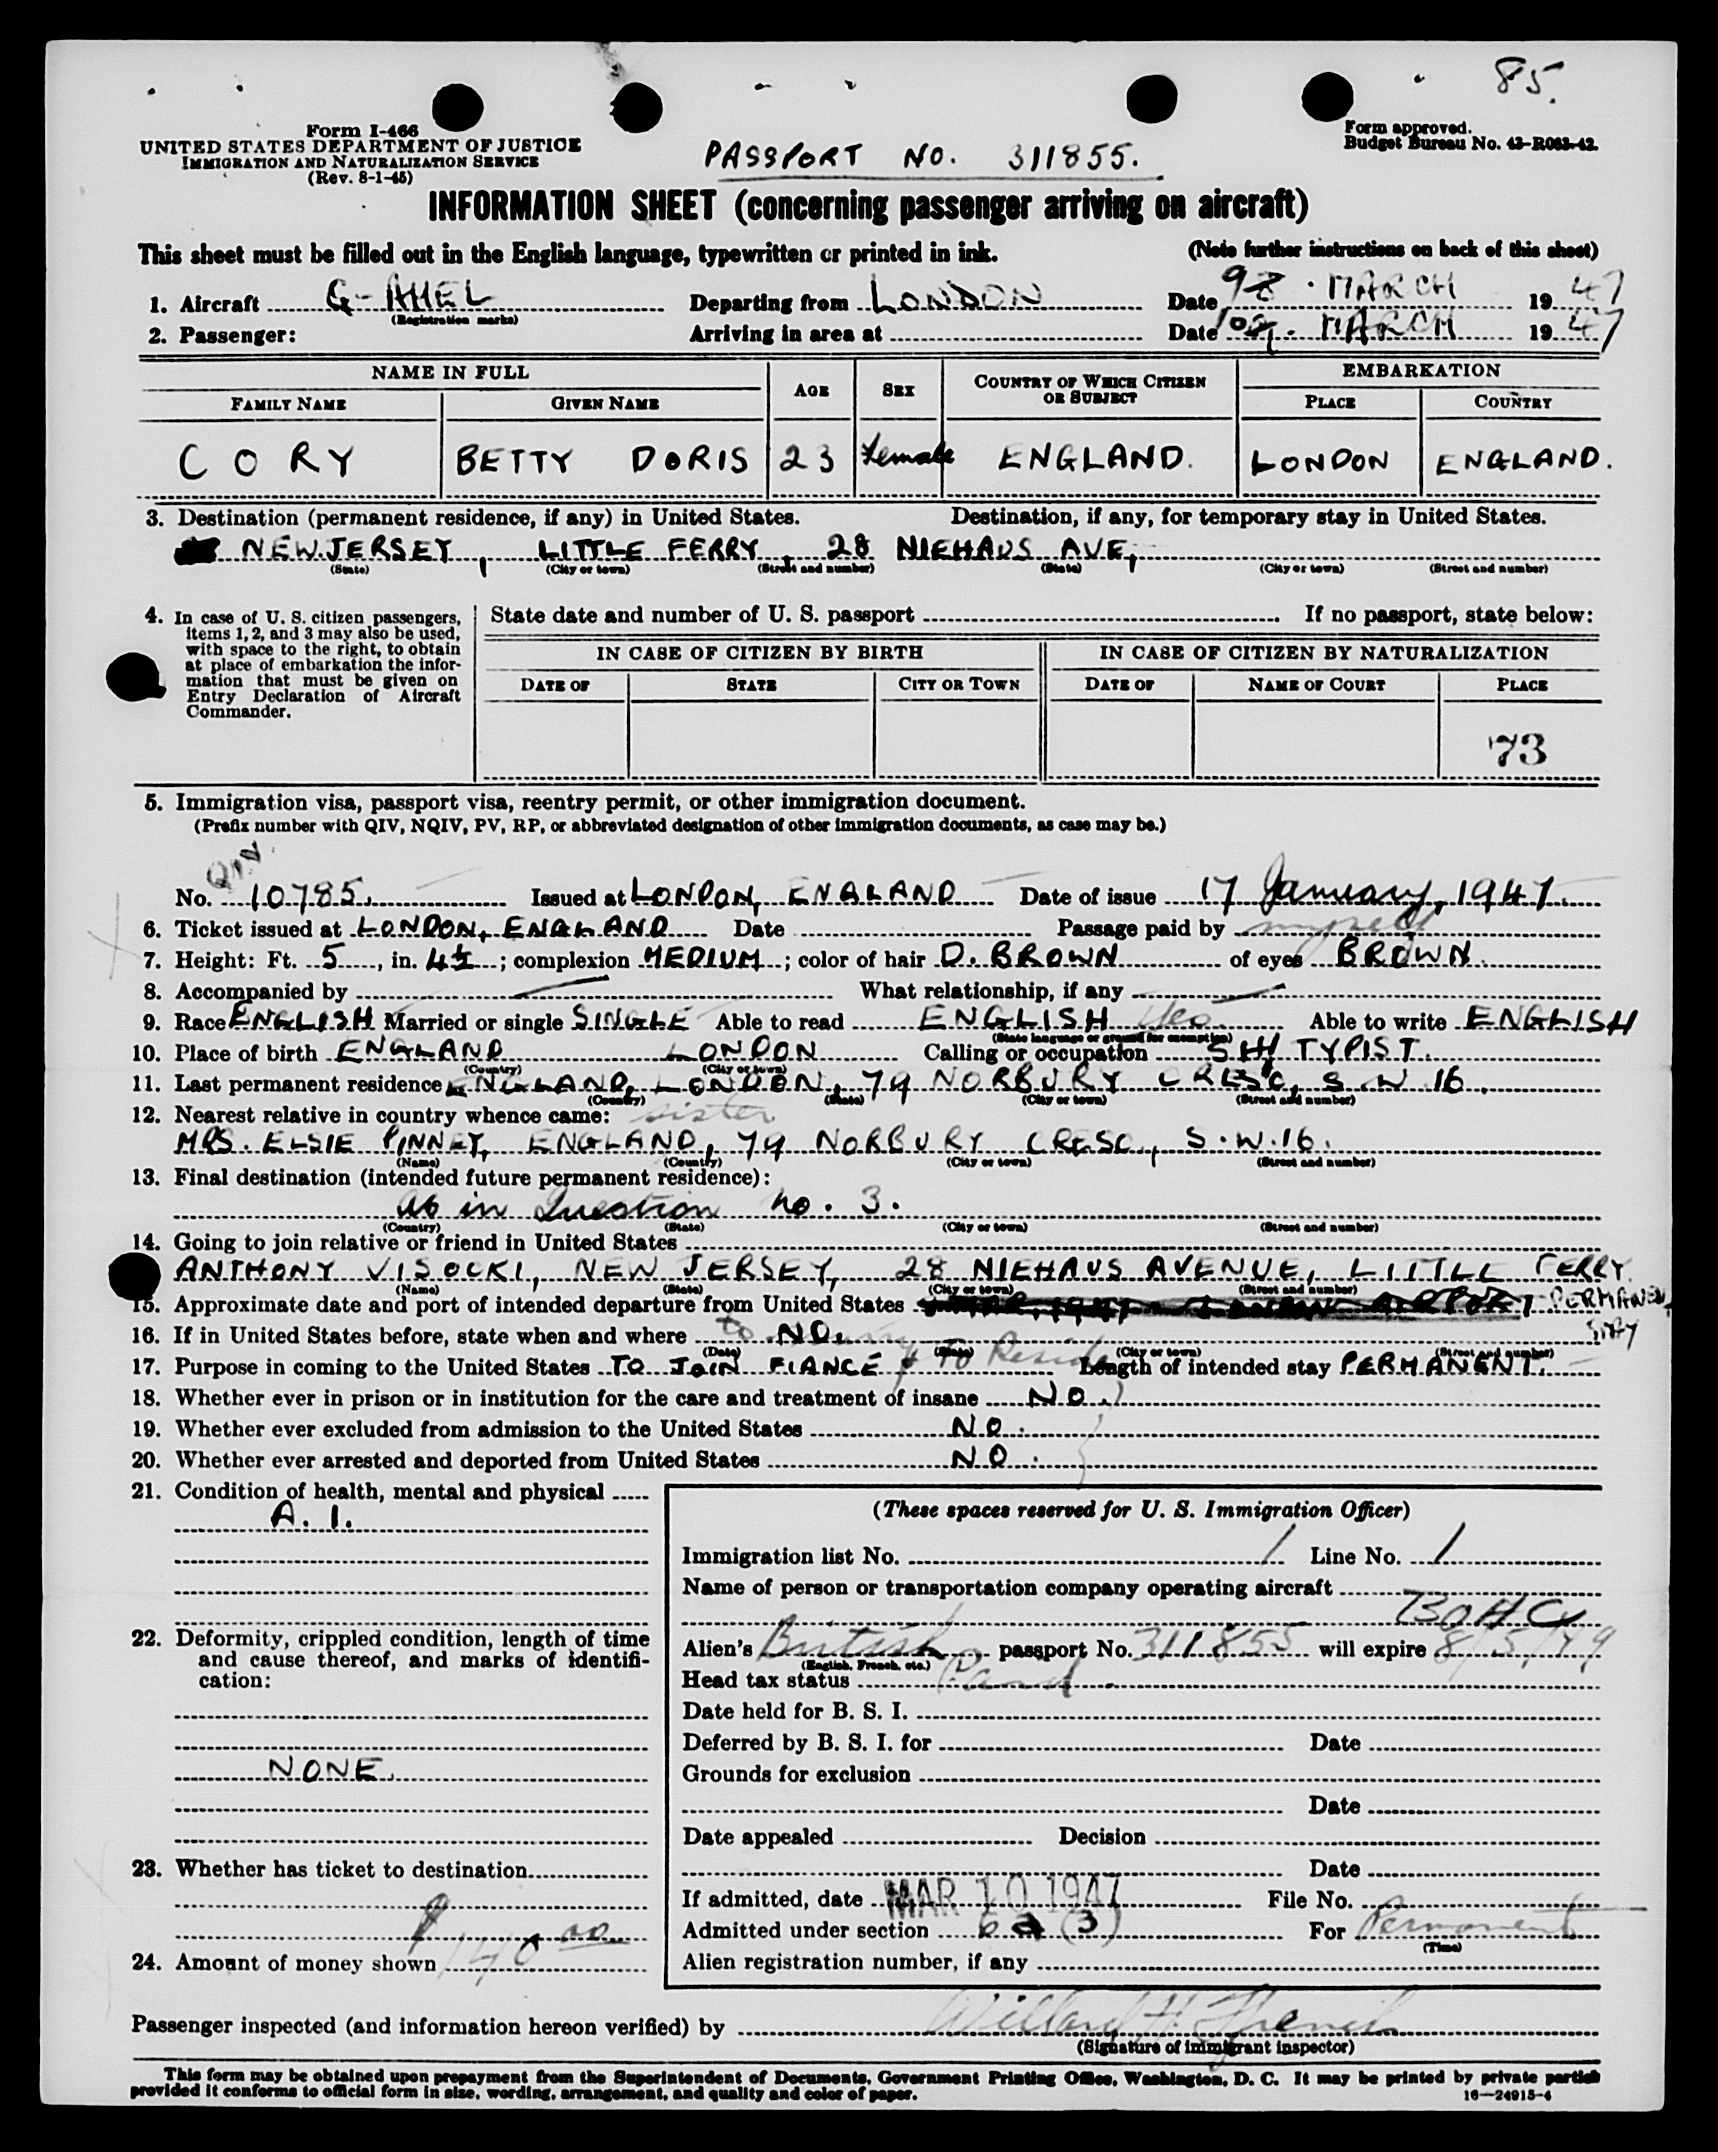 85.
Form I-466
UNITED STATES DEPARTMENT OF JUSTICE
IMMIGRATION AND NATURALIZATION SERVICE
(Rev. 8-1-45)
PASSPORT NO. 311855.
Form approved.
Budget Bureau No. 43-R063-42.
INFORMATION SHEET (concerning passenger arriving on aircraft)
This sheet must be filled out in the English language, typewritten or printed in ink. (Note further instructions on back of this sheet)
1. Aircraft G-AHEL Departing from LONDON Date 9 MARCH 1947
(Registration marks)
2. Passenger: Arriving in area at Date 10 MARCH 1947
NAME IN FULL AGE SEX COUNTRY OF WHICH CITIZEN OR SUBJECT EMBARKATION
FAMILY NAME GIVEN NAME PLACE COUNTRY
CORY BETTY DORIS 23 Female ENGLAND. LONDON ENGLAND.
3. Destination (permanent residence, if any) in United States. Destination, if any, for temporary stay in United States.
NEW JERSEY, LITTLE FERRY, 28 NIEHAUS AVE,
(State) (City or town) (Street and number) (State) (City or town) (Street and number)
4. In case of U. S. citizen passengers, items 1, 2, and 3 may also be used, with space to the right, to obtain at place of embarkation the information that must be given on Entry Declaration of Aircraft Commander.
State date and number of U. S. passport If no passport, state below:
IN CASE OF CITIZEN BY BIRTH IN CASE OF CITIZEN BY NATURALIZATION
DATE OF STATE CITY OR TOWN DATE OF NAME OF COURT PLACE
73
5. Immigration visa, passport visa, reentry permit, or other immigration document.
(Prefix number with QIV, NQIV, PV, RP, or abbreviated designation of other immigration documents, as case may be.)
QIV
No. 10785. Issued at LONDON, ENGLAND Date of issue 17 January, 1947.
6. Ticket issued at LONDON, ENGLAND Date Passage paid by myself
7. Height: Ft. 5, in. 4½; complexion MEDIUM; color of hair D. BROWN of eyes BROWN.
8. Accompanied by What relationship, if any
9. Race ENGLISH Married or single SINGLE Able to read ENGLISH Yes Able to write ENGLISH
(State language or ground for exemption)
10. Place of birth ENGLAND LONDON Calling or occupation SH TYPIST.
(Country) (City or town)
11. Last permanent residence ENGLAND, LONDON, 79 NORBURY CRESC, S.W.16.
(Country) (State) (City or town) (Street and number)
12. Nearest relative in country whence came: sister
MRS. ELSIE PINNEY, ENGLAND, 79 NORBURY CRESC., S.W.16.
(Name) (Country) (City or town) (Street and number)
13. Final destination (intended future permanent residence):
As in Question no. 3.
(Country) (State) (City or town) (Street and number)
14. Going to join relative or friend in United States
ANTHONY VISOCKI, NEW JERSEY, 28 NIEHAUS AVENUE, LITTLE FERRY.
(Name) (State) (City or town) (Street and number)
15. Approximate date and port of intended departure from United States PERMANENT STAY
16. If in United States before, state when and where NO.
(Date) (State) (City or town) (Street and number)
17. Purpose in coming to the United States TO JOIN FIANCÉ to marry & To Reside Length of intended stay PERMANENT.
18. Whether ever in prison or in institution for the care and treatment of insane NO.
19. Whether ever excluded from admission to the United States NO.
20. Whether ever arrested and deported from United States NO.
21. Condition of health, mental and physical
A.1.
22. Deformity, crippled condition, length of time and cause thereof, and marks of identification:
NONE.
23. Whether has ticket to destination
24. Amount of money shown 140 00
(These spaces reserved for U. S. Immigration Officer)
Immigration list No. 1 Line No. 1
Name of person or transportation company operating aircraft
BOAC
Alien's British passport No. 311855 will expire 8/5/49
(English, French, etc.)
Head tax status Paid.
Date held for B. S. I.
Deferred by B. S. I. for Date
Grounds for exclusion
Date
Date appealed Decision
Date
If admitted, date MAR 10 1947 File No.
Admitted under section 6a(3) For Permanent
(Time)
Alien registration number, if any
Passenger inspected (and information hereon verified) by Willard H.
(Signature of immigrant inspector)
This form may be obtained upon prepayment from the Superintendent of Documents, Government Printing Office, Washington, D. C. It may be printed by private parties
provided it conforms to official form in size, wording, arrangement, and quality and color of paper. 16—24915-4